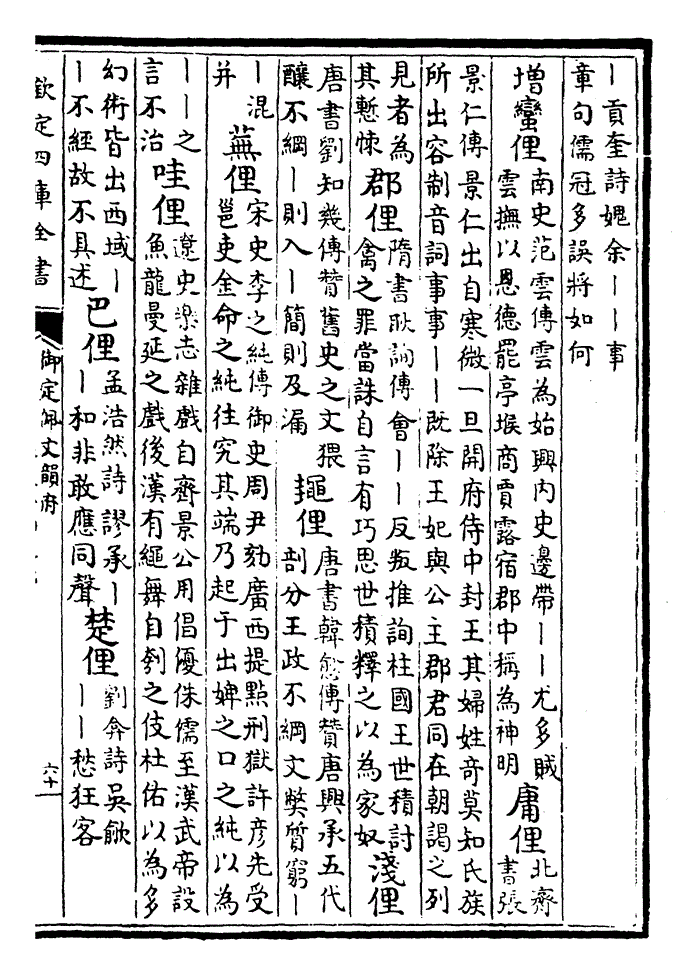 丨貢奎詩媿余丨丨事
章句儒冠多誤將如何
增蠻俚
南史范雲傳雲為始興内史邊帶丨丨尤多賊
雲撫以恩德罷亭堠商賈露宿郡中稱為神明
庸俚
北齊
書張
景仁傳景仁出自寒微一旦開府侍中封王其婦姓竒莫知氏族
所出容制音詞事事丨丨既除王妃與公主郡君同在朝謁之列
見者為
其慙悚
郡俚
隋書耿詢傳會丨丨反叛推詢柱國王世積討
禽之罪當誅自言有巧思世積釋之以為家奴
淺俚
唐書劉知幾傳贊舊史之文猥
釀不綱丨則入丨簡則及漏
䵷俚
唐書韓愈傳贊唐興承五代
剖分王政不綱文弊質窮丨
丨混
并
蕪俚
宋史李之純傳御史周尹劾廣西提點刑獄許彦先受
邕吏金命之純往究其端乃起于出婢之口之純以為
丨丨之
言不治
哇俚
遼史樂志雜戲自齊景公用倡優侏儒至漢武帝設
魚龍曼延之戲後漢有繩舞自刳之伎杜佑以為多
幻術皆出西域丨
丨不經故不具述
巴俚
孟浩然詩謬承丨
丨和非敢應同聲
楚俚
劉弇詩吳歈
丨丨愁狂客
欽定四庫全書
御定佩文韻府
六十